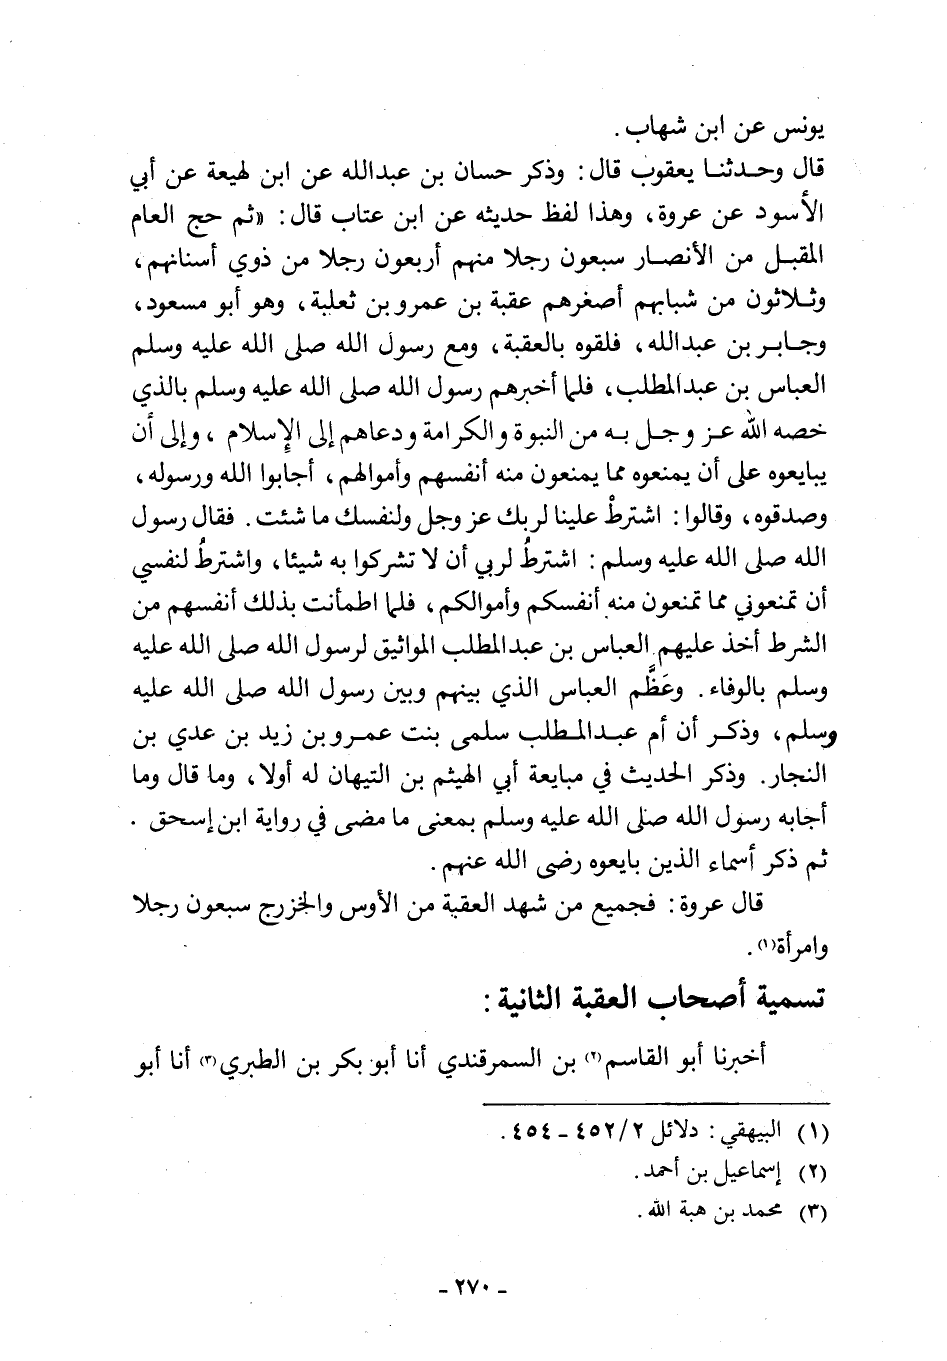 يونس عن ابن شهاب .
قال وحدثنا يعقوب قال : وذكر حسان بن عبدالله عن ابن لهيعة عن أبي
الأسود عن عروة ، وهذا لفظ حديثه عن ابن عتاب قال : «ثم حج العام
المقبل من الأنصار سبعون رجلا منهم أربعون رجلا من ذوي أسنانهم ،
وثلاثون من شبابهم أصغرهم عقبة بن عمرو بن ثعلبة ، وهو أبو مسعود ،
وجابر بن عبدالله ، فلقوه بالعقبة ، ومع رسول الله صلى الله عليه وسلم
العباس بن عبدالمطلب ، فلما أخبرهم رسول الله صلى الله عليه وسلم بالذي
خصه الله عز وجل به من النبوة والكرامة ودعاهم إلى الإسلام ، وإلى أن
يبايعوه على أن يمنعوه مما يمنعون منه أنفسهم وأموالهم ، أجابوا الله ورسوله ،
وصدقوه ، وقالوا : اشترطْ علينا لربك عز وجل ولنفسك ما شئت . فقال رسول
الله صلى الله عليه وسلم : اشترطُ لربي أن لا تشركوا به شيئا ، واشترطُ لنفسي
أن تمنعوني مما تمنعون منه أنفسكم وأموالكم ، فلما اطمأنت بذلك أنفسهم من
الشرط أخذ عليهم العباس بن عبدالمطلب المواثيق لرسول الله صلى الله عليه
وسلم بالوفاء . وعَظَّم العباس الذي بينهم وبين رسول الله صلى الله عليه
وسلم ، وذكر أن أم عبدالمطلب سلمى بنت عمرو بن زيد بن عدي بن
النجار . وذكر الحديث في مبايعة أبي الهيثم بن التيهان له أولا ، وما قال وما
أجابه رسول الله صلى الله عليه وسلم بمعنى ما مضى في رواية ابن إسحق .
ثم ذكر أسماء الذين بايعوه رضى الله عنهم .
قال عروة : فجميع من شهد العقبة من الأوس والخزرج سبعون رجلا
وامرأة(١) .
تسمية أصحاب العقبة الثانية :
أخبرنا أبو القاسم(٢) بن السمرقندي أنا أبو بكر بن الطبري(٣) أنا أبو
(١) البيهقي : دلائل ٢/ ٤٥٢ - ٤٥٤ .
(٢) إسماعيل بن أحمد .
(٣) محمد بن هبة الله .
- ٢٧٠ -